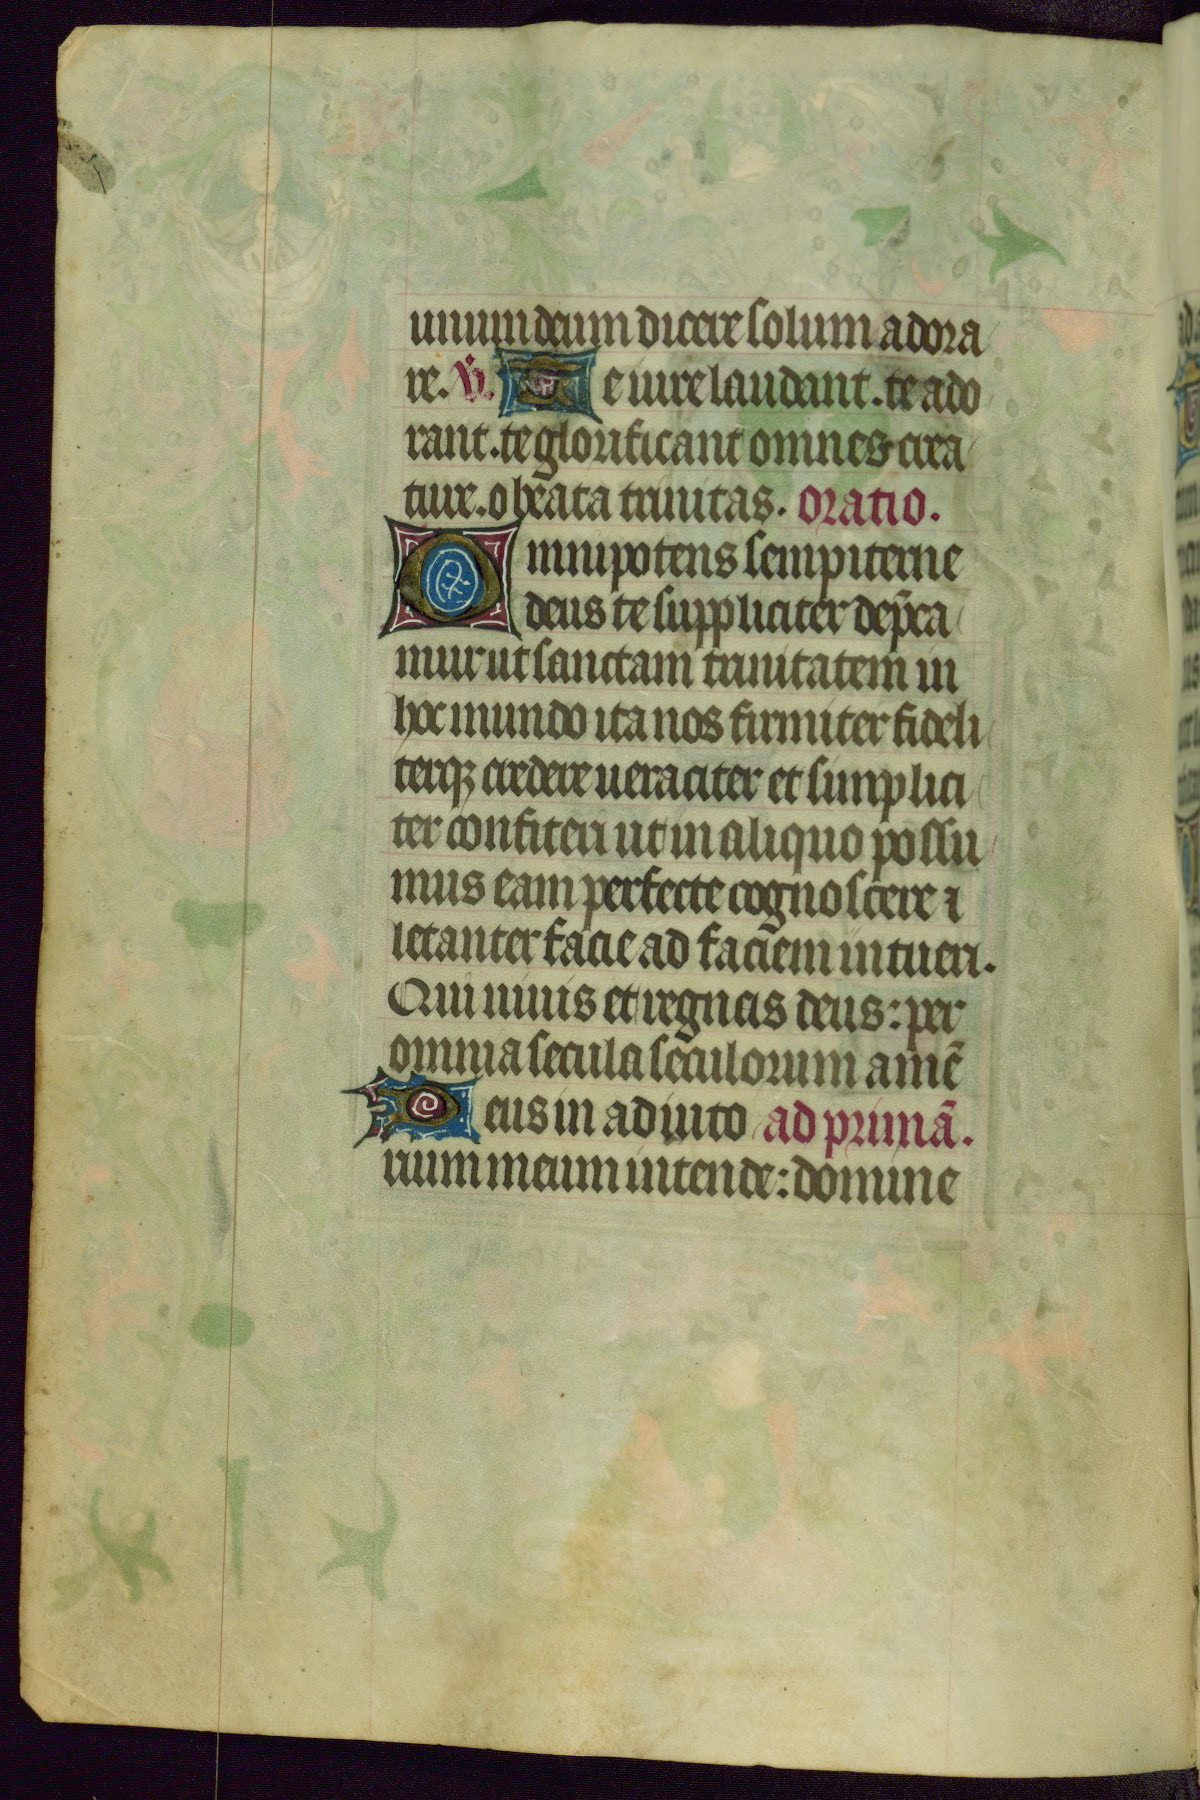 unum deum dicere solum adora
re. V̄. Te iure laudant. te ado
rant. te glorificant omnes crea
ture. o bēata trinitas. oratio.
Omnipotens sempiterne
deus te suppliciter dep̄ca
mur ut sanctam trinitatem in
hoc mundo ita nos firmiter fideli
terqꝫ credere ueraciter et simplici
ter confiteri ut in aliquo possu
mus eam perfecte cognoscere ⁊
letanter facie ad faciem intueri.
Qui uiuis et regnas deus: per
omnia secula seculorum amē
Deus in adiuto ad primā.
rium meum intende: domine